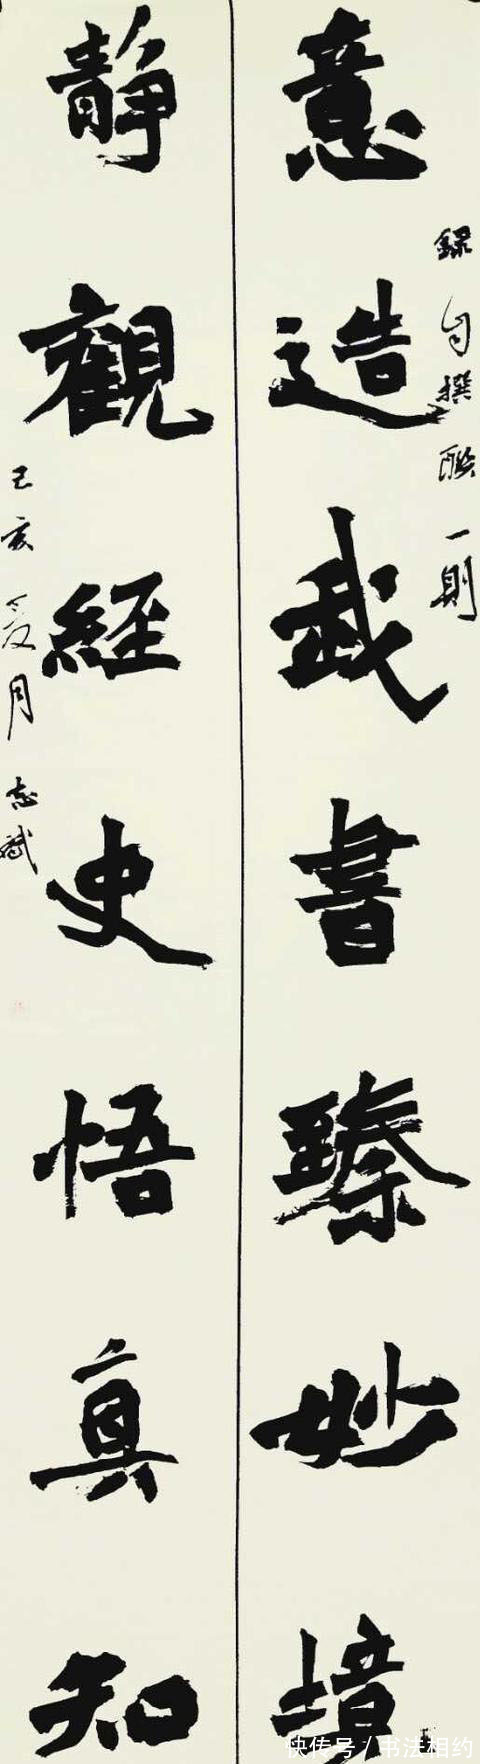 意造武書臻妙境
錄自撰聯一則
靜觀經史悟真知
己亥夏月志斌
快传号/书法相约